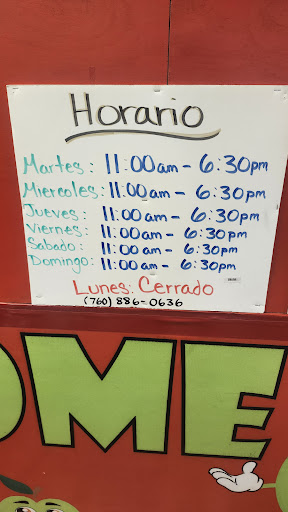 Horario
Martes: 11:00am - 6:30pm
Miercoles: 11:00am - 6:30pm
Jueves: 11:00am - 6:30pm
Viernes: 11:00am - 6:30pm
Sabado: 11:00am - 6:30pm
Domingo: 11:00am - 6:30pm
Lunes: Cerrado
(760) 886-0636
OME